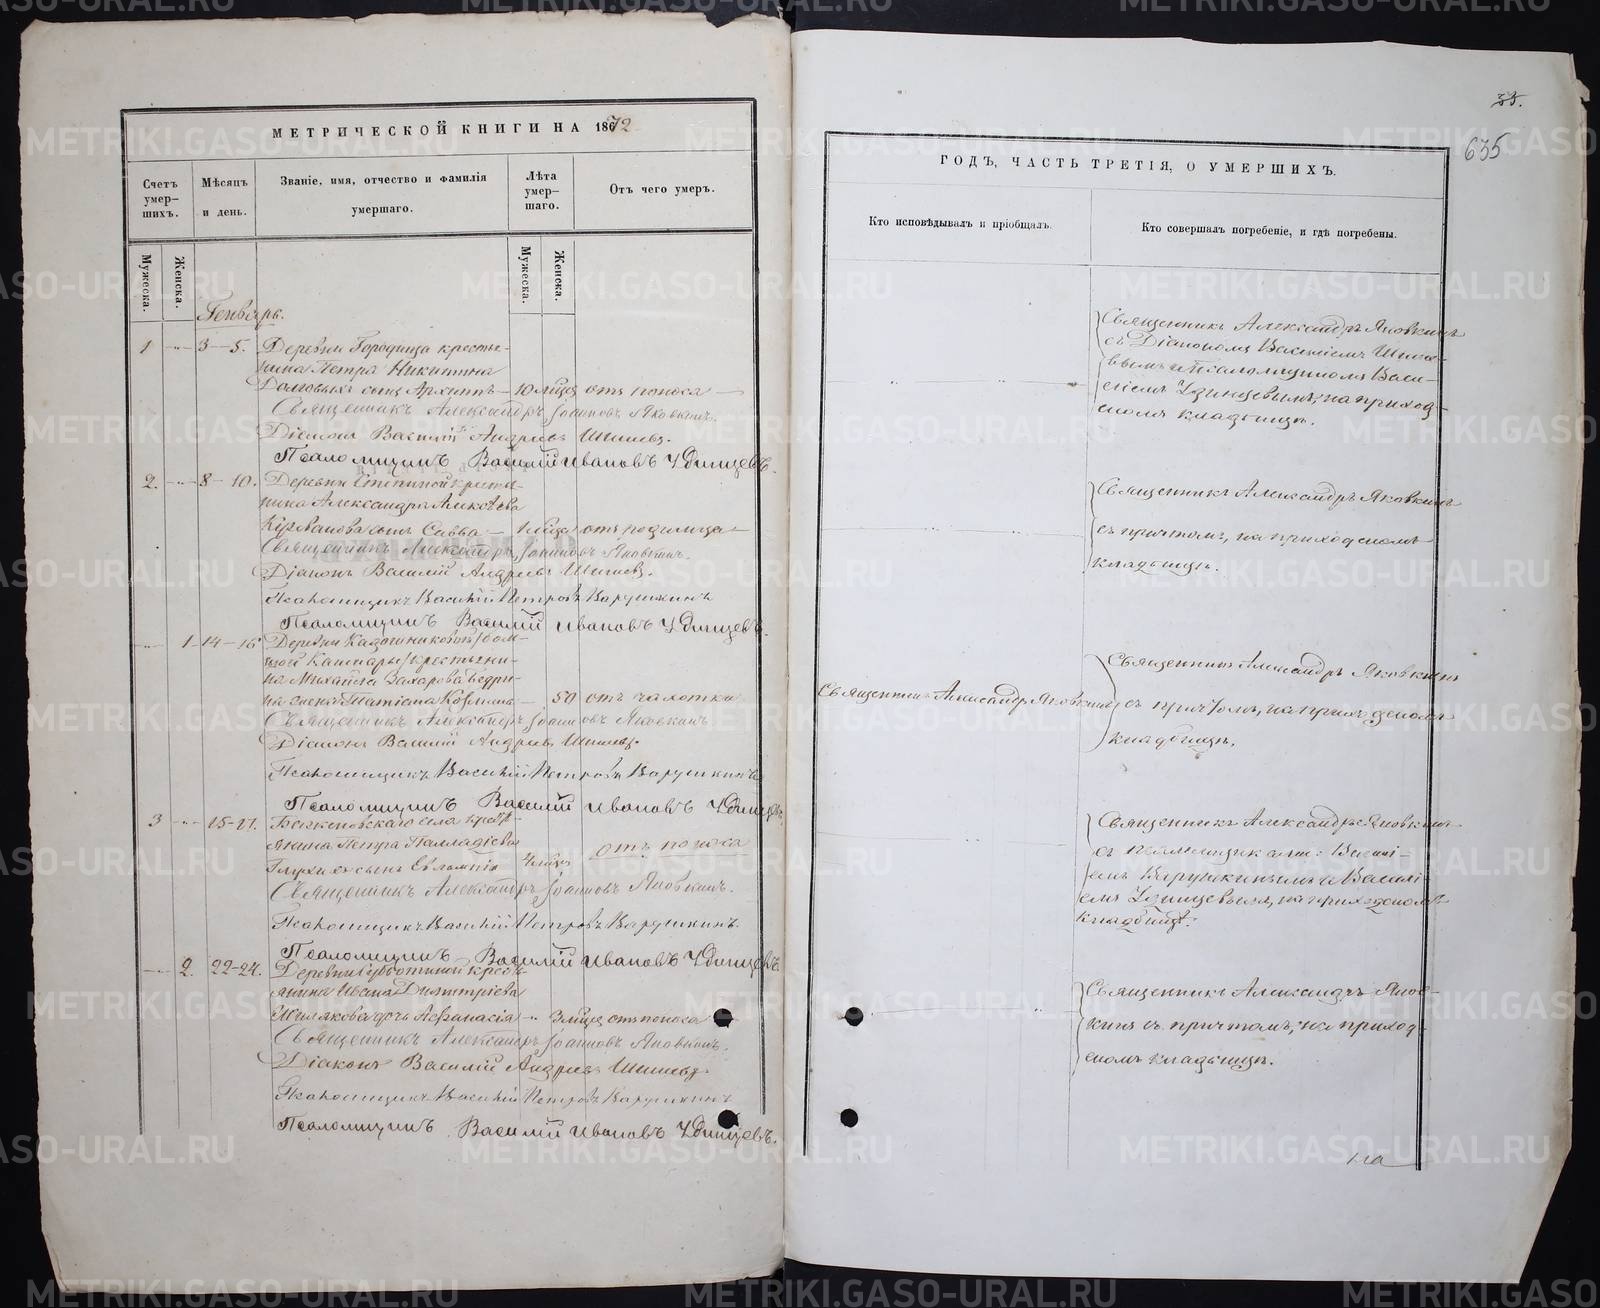 МЕТРИЧЕСКОЙ КНИГИ НА 1872
Счетъ умер-шихъ.
Мѣсяцъ и день.
Званіе, имя, отчество и фамилія умершаго.
Лѣта умер-шаго.
Отъ чего умеръ.
Мужеска.
Женска.
Мужеска.
Женска.
Генварь.
1 -"- 3-5. Деревни Городища кресть-
янина Петра Никитина
Долговыхъ сынъ Архипъ - 10 мѣсяц отъ поноса
Священникъ Александръ Іоанновъ Яковкинъ.
Діаконъ Василій Андреевъ Шишевъ.
Псаломщикъ Василій Ивановъ Удинцевъ.
2. -"- 8-10. Деревни кресть-
янина Александра Алексѣева
сынъ Савва - 1 мѣсяца отъ родимца
Священникъ Александръ Іоанновъ Яковкинъ.
Діаконъ Василій Андреевъ Шишевъ.
Псаломщикъ Василій Петровъ Варушкинъ
Псаломщикъ Василій Ивановъ Удинцевъ.
-"- 1 14-16 Деревни
крестьяни-
на Михаила Захарова
жена 50 отъ чахотки
Священникъ Александръ Іоанновъ Яковкинъ
Діаконъ Василій Андреевъ Шишевъ.
Псаломщикъ Василій Петровъ Варушкинъ
Псаломщикъ Василій Ивановъ Удинцевъ.
3 -"- 15-17. села крестьянина Петра Палладіева
Глухихъ сынъ Евлампій 4 мѣсяц отъ поноса
Священникъ Александръ Іоанновъ Яковкинъ.
Псаломщикъ Василій Петровъ Варушкинъ.
Псаломщикъ Василій Ивановъ Удинцевъ.
-"- 2. 22-24. Деревни Субботиной кресть-
янина Ивана Димитріева
дочь Аѳанасія -"- 3 мѣсяц отъ поноса
Священникъ Александръ Іоанновъ Яковкинъ.
Діаконъ Василій Андреевъ Шишевъ.
Псаломщикъ Василій Петровъ Варушкинъ
Псаломщикъ Василій Ивановъ Удинцевъ.
35.
635
ГОДЪ, ЧАСТЬ ТРЕТІЯ, О УМЕРШИХЪ.
Кто исповѣдывалъ и пріобщалъ.
Кто совершалъ погребеніе, и гдѣ погребены.
Священникъ Александръ Яковкинъ
съ Діакономъ Василіемъ Шише-
вымъ и псаломщикомъ Васи-
ліемъ Удинцевымъ, на приход-
скомъ кладбищѣ.
Священникъ Александръ Яковкинъ
съ причтомъ, на приходскомъ
кладбищѣ.
Священникъ Александръ Яковкинъ
Священникъ Александръ Яковкинъ
съ причтомъ, на приходскомъ
кладбищѣ.
Священникъ Александръ Яковкинъ
съ псаломщиками: Василі-
емъ Варушкинымъ и Василі-
емъ Удинцевымъ, на приходскомъ
кладбищѣ.
Священникъ Александръ Яков-
кинъ съ причтомъ, на приход-
скомъ кладбищѣ.
на
METRIKI.GASO-URAL.RU